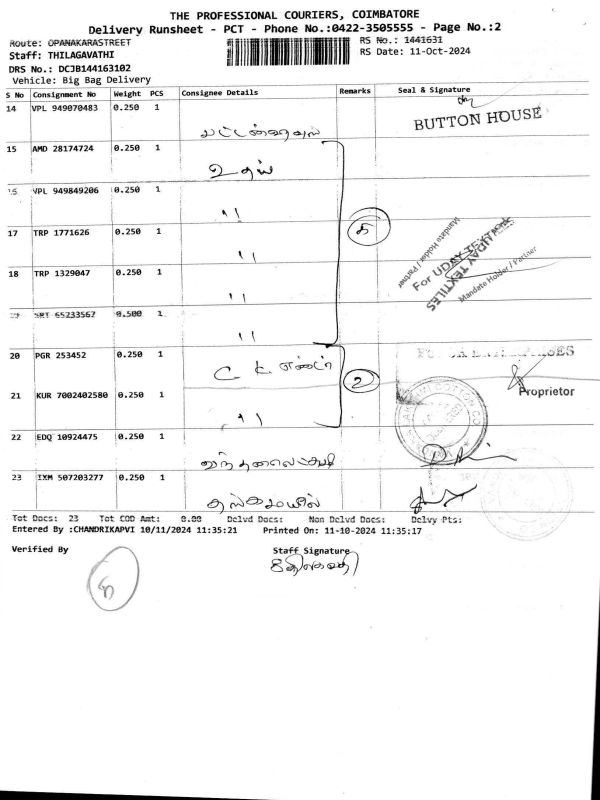 THE PROFESSIONAL COURIERS, COIMBATORE
Delivery Runsheet - PCT - Phone No.:0422-3505555 - Page No.:2
Route: OPANAKARASTREET
RS No.: 1441631
Staff: THILAGAVATHI
RS Date: 11-Oct-2024
DRS No.: DCJB144163102
Vehicle: Big Bag Delivery
S No Consignment No Weight PCS Consignee Details Remarks Seal & Signature
14 VPL 949070483 0.250 1
BUTTON HOUSE
15 AMD 28174724 0.250 1
உதய்
VPL 949849206 0.250 1
"
17 TRP 1771626 0.250 1
"
Mandate Holder / Partner
For UDAY TEXTILES
UDAY TEXTILES
Mandate Holder / Partner
18 TRP 1329047 0.250 1
"
SRT 65233567 0.500 1
"
20 PGR 253452 0.250 1
C K
2
Proprietor
21 KUR 7002402580 0.250 1
"
22 EDQ 10924475 0.250 1
23 IXM 507203277 0.250 1
Tot Docs: 23 Tot COD Amt: 0.00 Delvd Docs: Non Delvd Docs: Delvy Pts:
Entered By :CHANDRIKAPVI 10/11/2024 11:35:21 Printed On: 11-10-2024 11:35:17
Verified By
Staff Signature